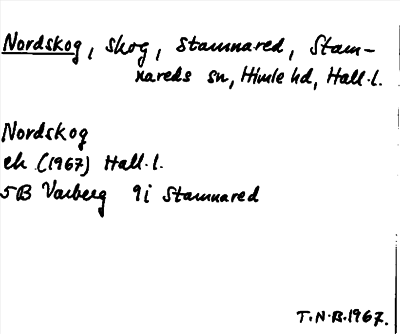 Nordskog, skog, Stamnared, Stam-
nareds sn, Himle hd, Hall.l.
Nordskog
ek (1967) Hall.l.
5B Varberg 9i Stamnared
T.N.B.1967.